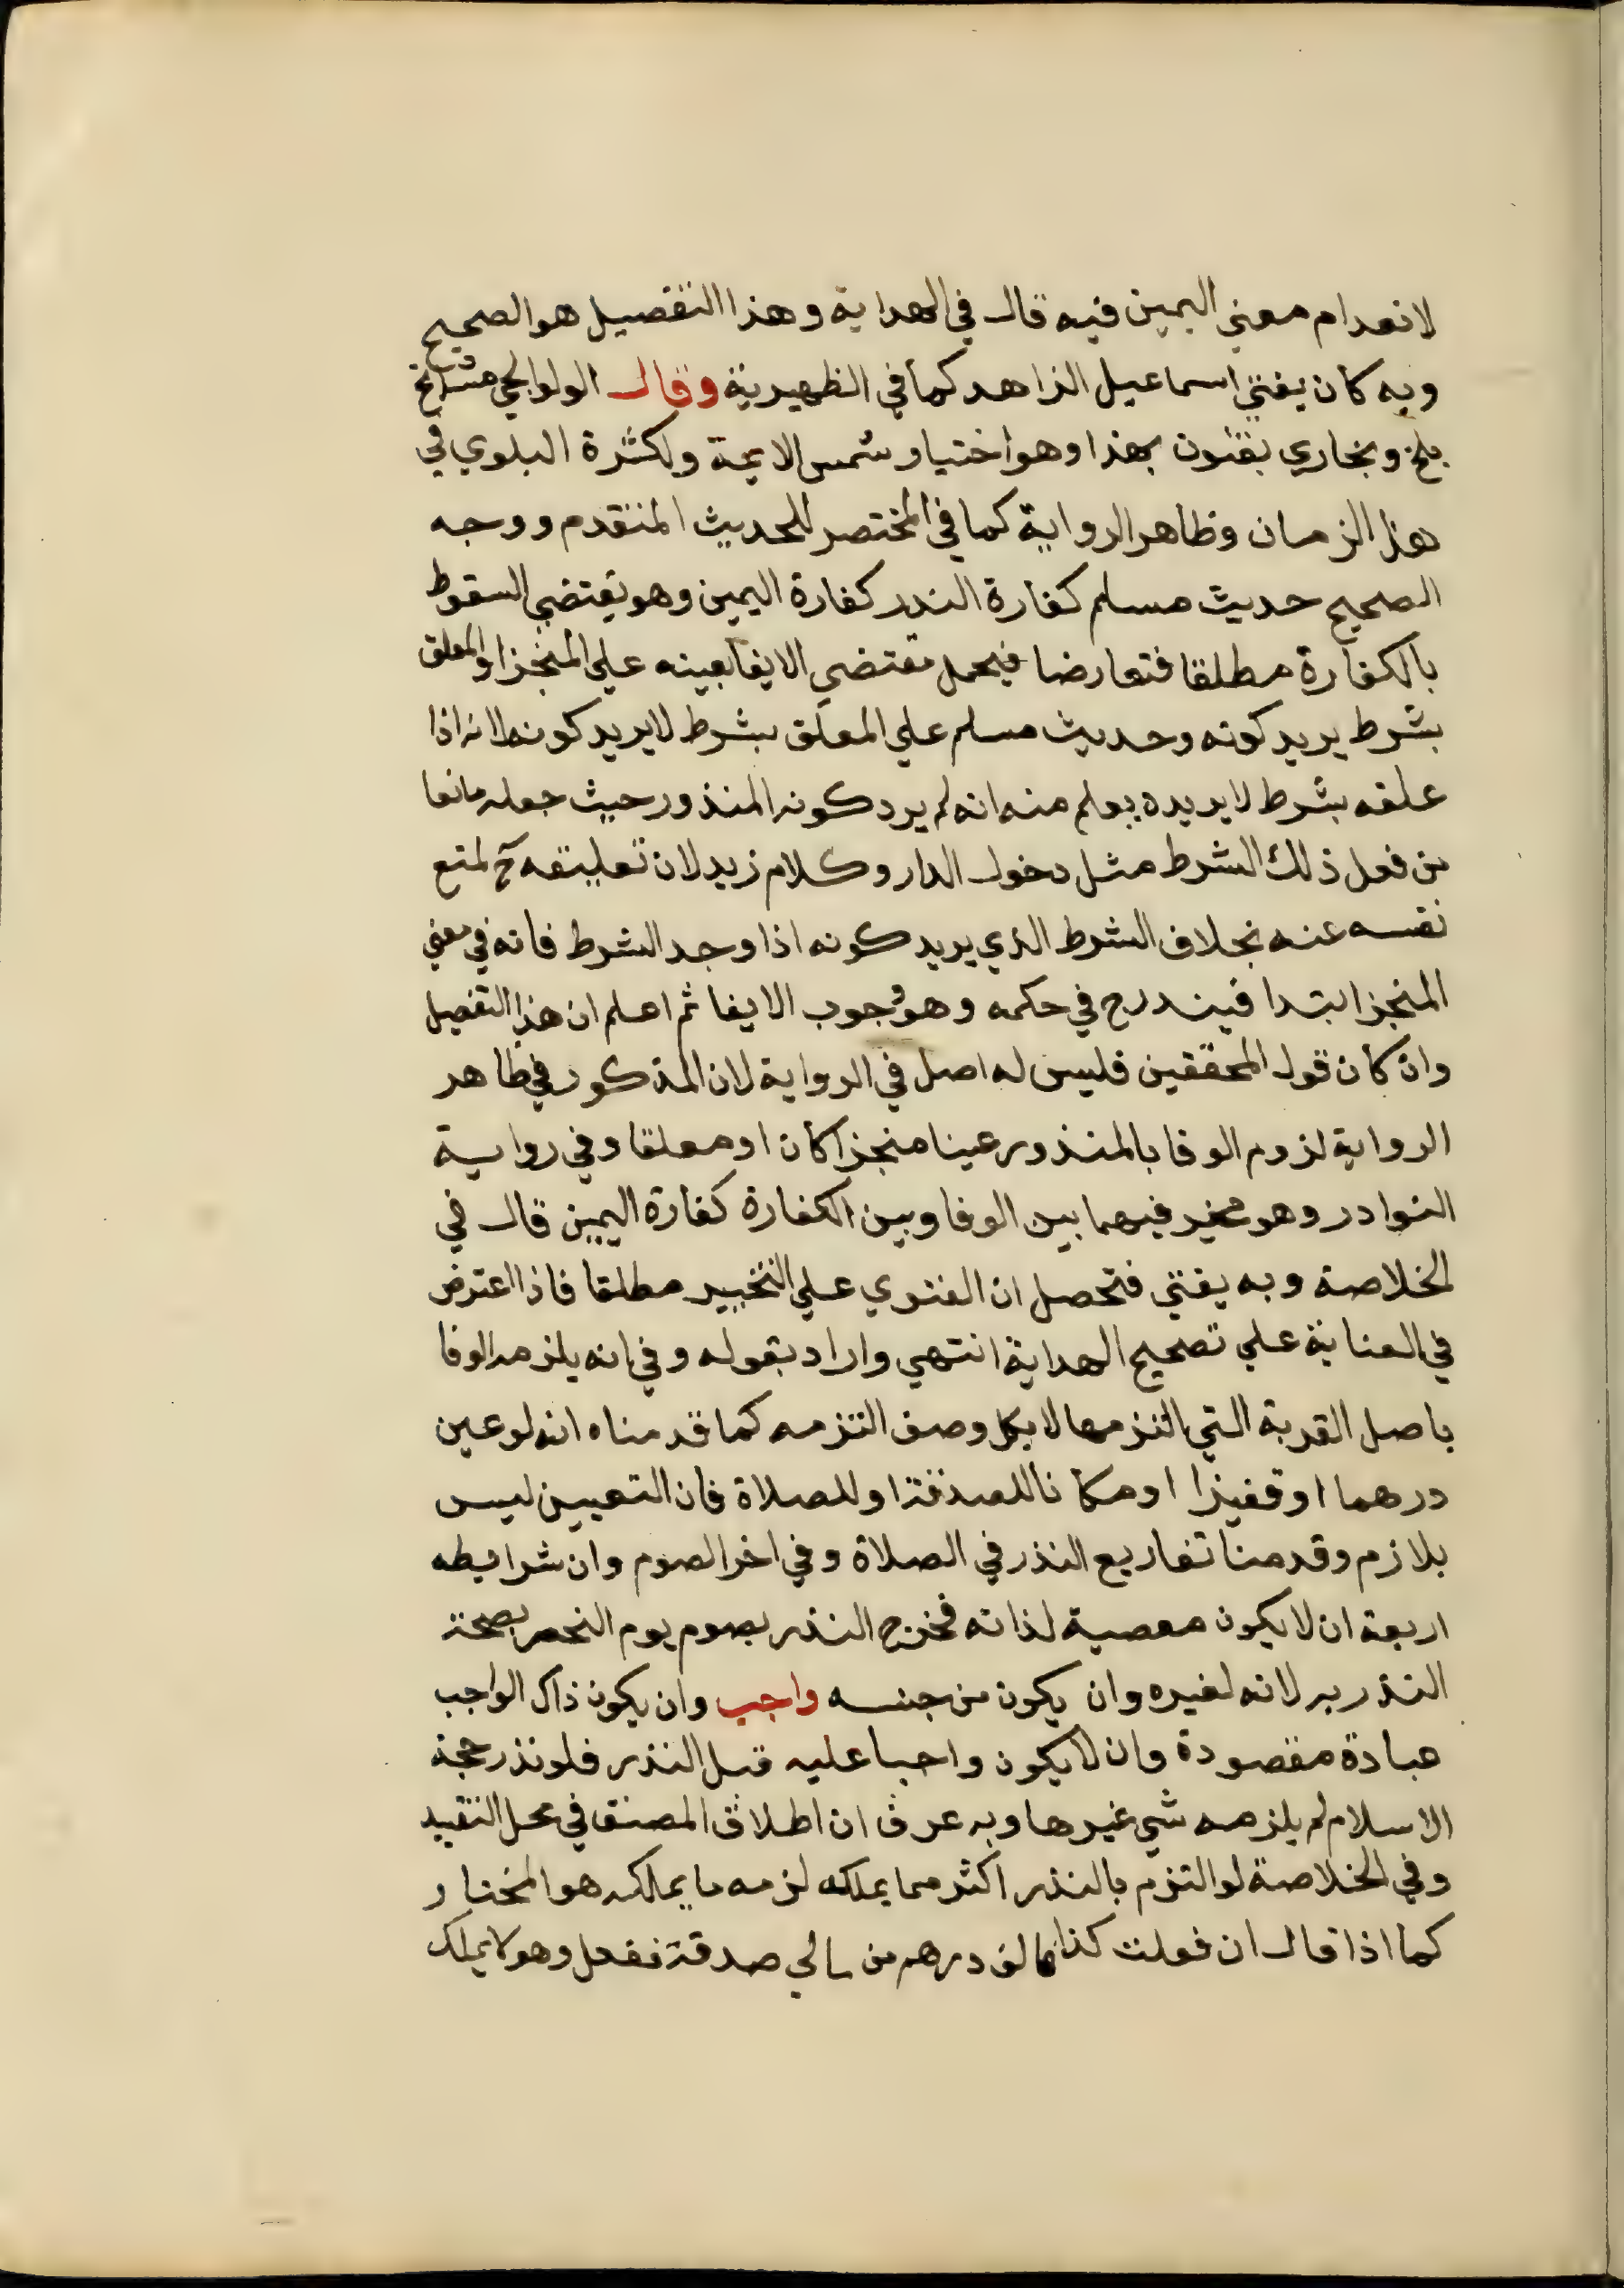 لانعدام معني اليمين فيه قال في الهداية وهذا التفصيل هو الصحيح
وبه كان يفتي اسماعيل الزاهد كما في الظهيرية وقال الولوالجي مشايخ
بلخ وبخاري يفتون بهذا وهو اختيار شمس الايمة ولكثرة البلوي في
هذا الزمان وظاهر الرواية كما في المختصر للحديث المتقدم ووجه
الصحيح حديث مسلم كفارة النذر كفارة اليمين وهو يقتضي السقوط
بالكفارة مطلقا فتعارضا فيحمل مقتضي الايفا بعينه علي المنجز او المعلق
بشرط يريد كونه وحديث مسلم علي المعلق بشرط لا يريد كونه لانه اذا
علقه بشرط لا يريده يعلم منه انه لم يرد كونه المنذور حيث جعله مانعا
من فعل ذلك الشرط مثل دخول الدار وكلام زيد لان تعليقه ح لمنع
نفسه عنه بخلاف الشرط الذي يريد كونه اذا وجد الشرط فانه في معني
المنجز ابتدا فيندرج في حكمه وهو وجوب الايفا ثم اعلم ان هذا التفصيل
وان كان قول المحققين فليس له اصل في الرواية لان المذكور في ظاهر
الرواية لزوم الوفا بالمنذور عينا منجزا كان او معلقا وفي رواية
النوادر وهو مخير فيهما بين الوفا وبين الكفارة كفارة اليمين قال في
الخلاصة وبه يفتي فتحصل ان الفتوي علي التخيير مطلقا فاذا اعترض
في العناية علي تصحيح الهداية انتهي واراد بقوله وفي انه يلزمه الوفا
باصل القربة التي التزمها لا بكل وصف التزمه كما قدمناه انه لو عين
درهما او فقيرا او مكانا للصدقة او للصلاة فان التعيين ليس
بلازم وقدمنا تفاريع النذر في الصلاة وفي اخر الصوم وان شرايطه
اربعة ان لا يكون معصية لذاته فخرج النذر بصوم يوم النحر بصحة
النذر به لانه لغيره وان يكون من جنسه واجب وان يكون ذاك الواجب
عبادة مقصودة وان لا يكون واجبا عليه قبل النذر فلو نذر حجة
الاسلام لم يلزمه شي غيرها وبه عرف ان اطلاق المصنف في محل التقييد
وفي الخلاصة لو التزم بالنذر اكثر مما يملكه لزمه ما يملكه هو المختار
كما اذا قال ان فعلت كذا فالف درهم من مالي صدقة ففعل وهو لا يملك